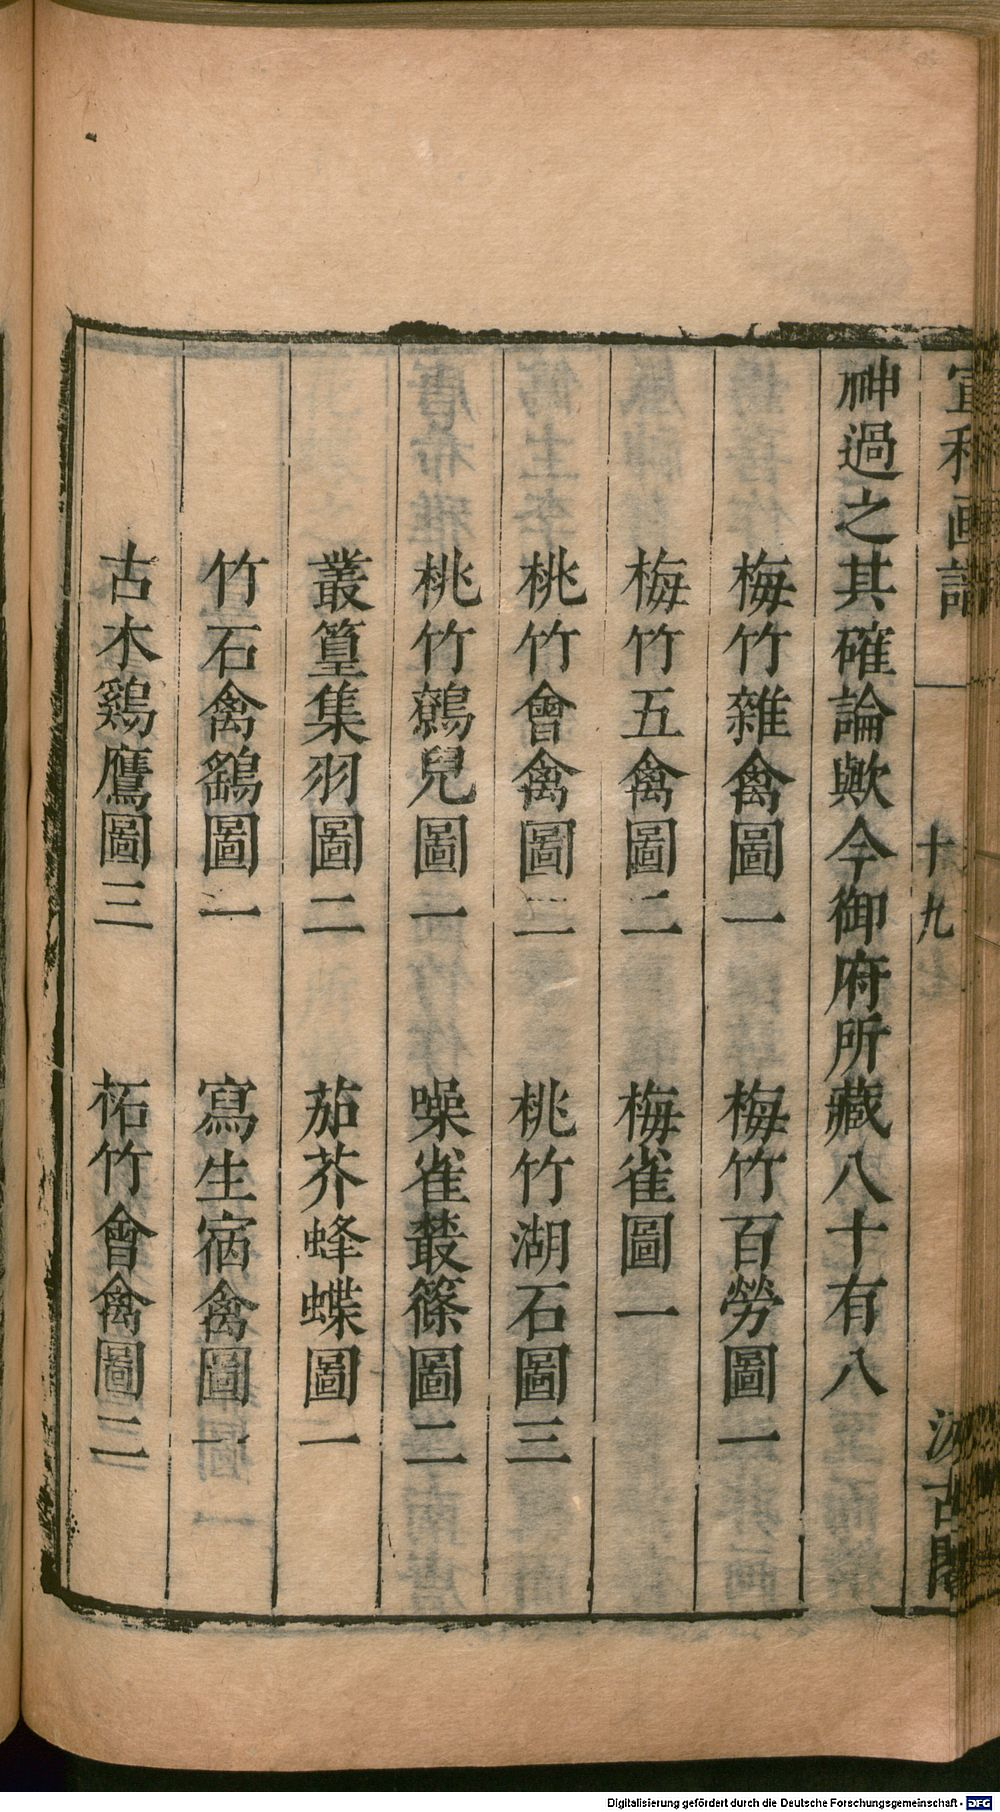 宣和画譜 十九 汲古閣
神過之其確論歟今御府所藏八十有八
梅竹雜禽圖一 梅竹百勞圖一
梅竹五禽圖二 梅雀圖一
桃竹會禽圖二 桃竹湖石圖三
桃竹鷯兒圖一 噪雀叢篠圖二
叢篁集羽圖二 茄芥蜂蝶圖一
竹石禽鷂圖一 寫生宿禽圖一
古木鷄鷹圖三 柘竹會禽圖二
Digitalisierung gefördert durch die Deutsche Forschungsgemeinschaft - DFG